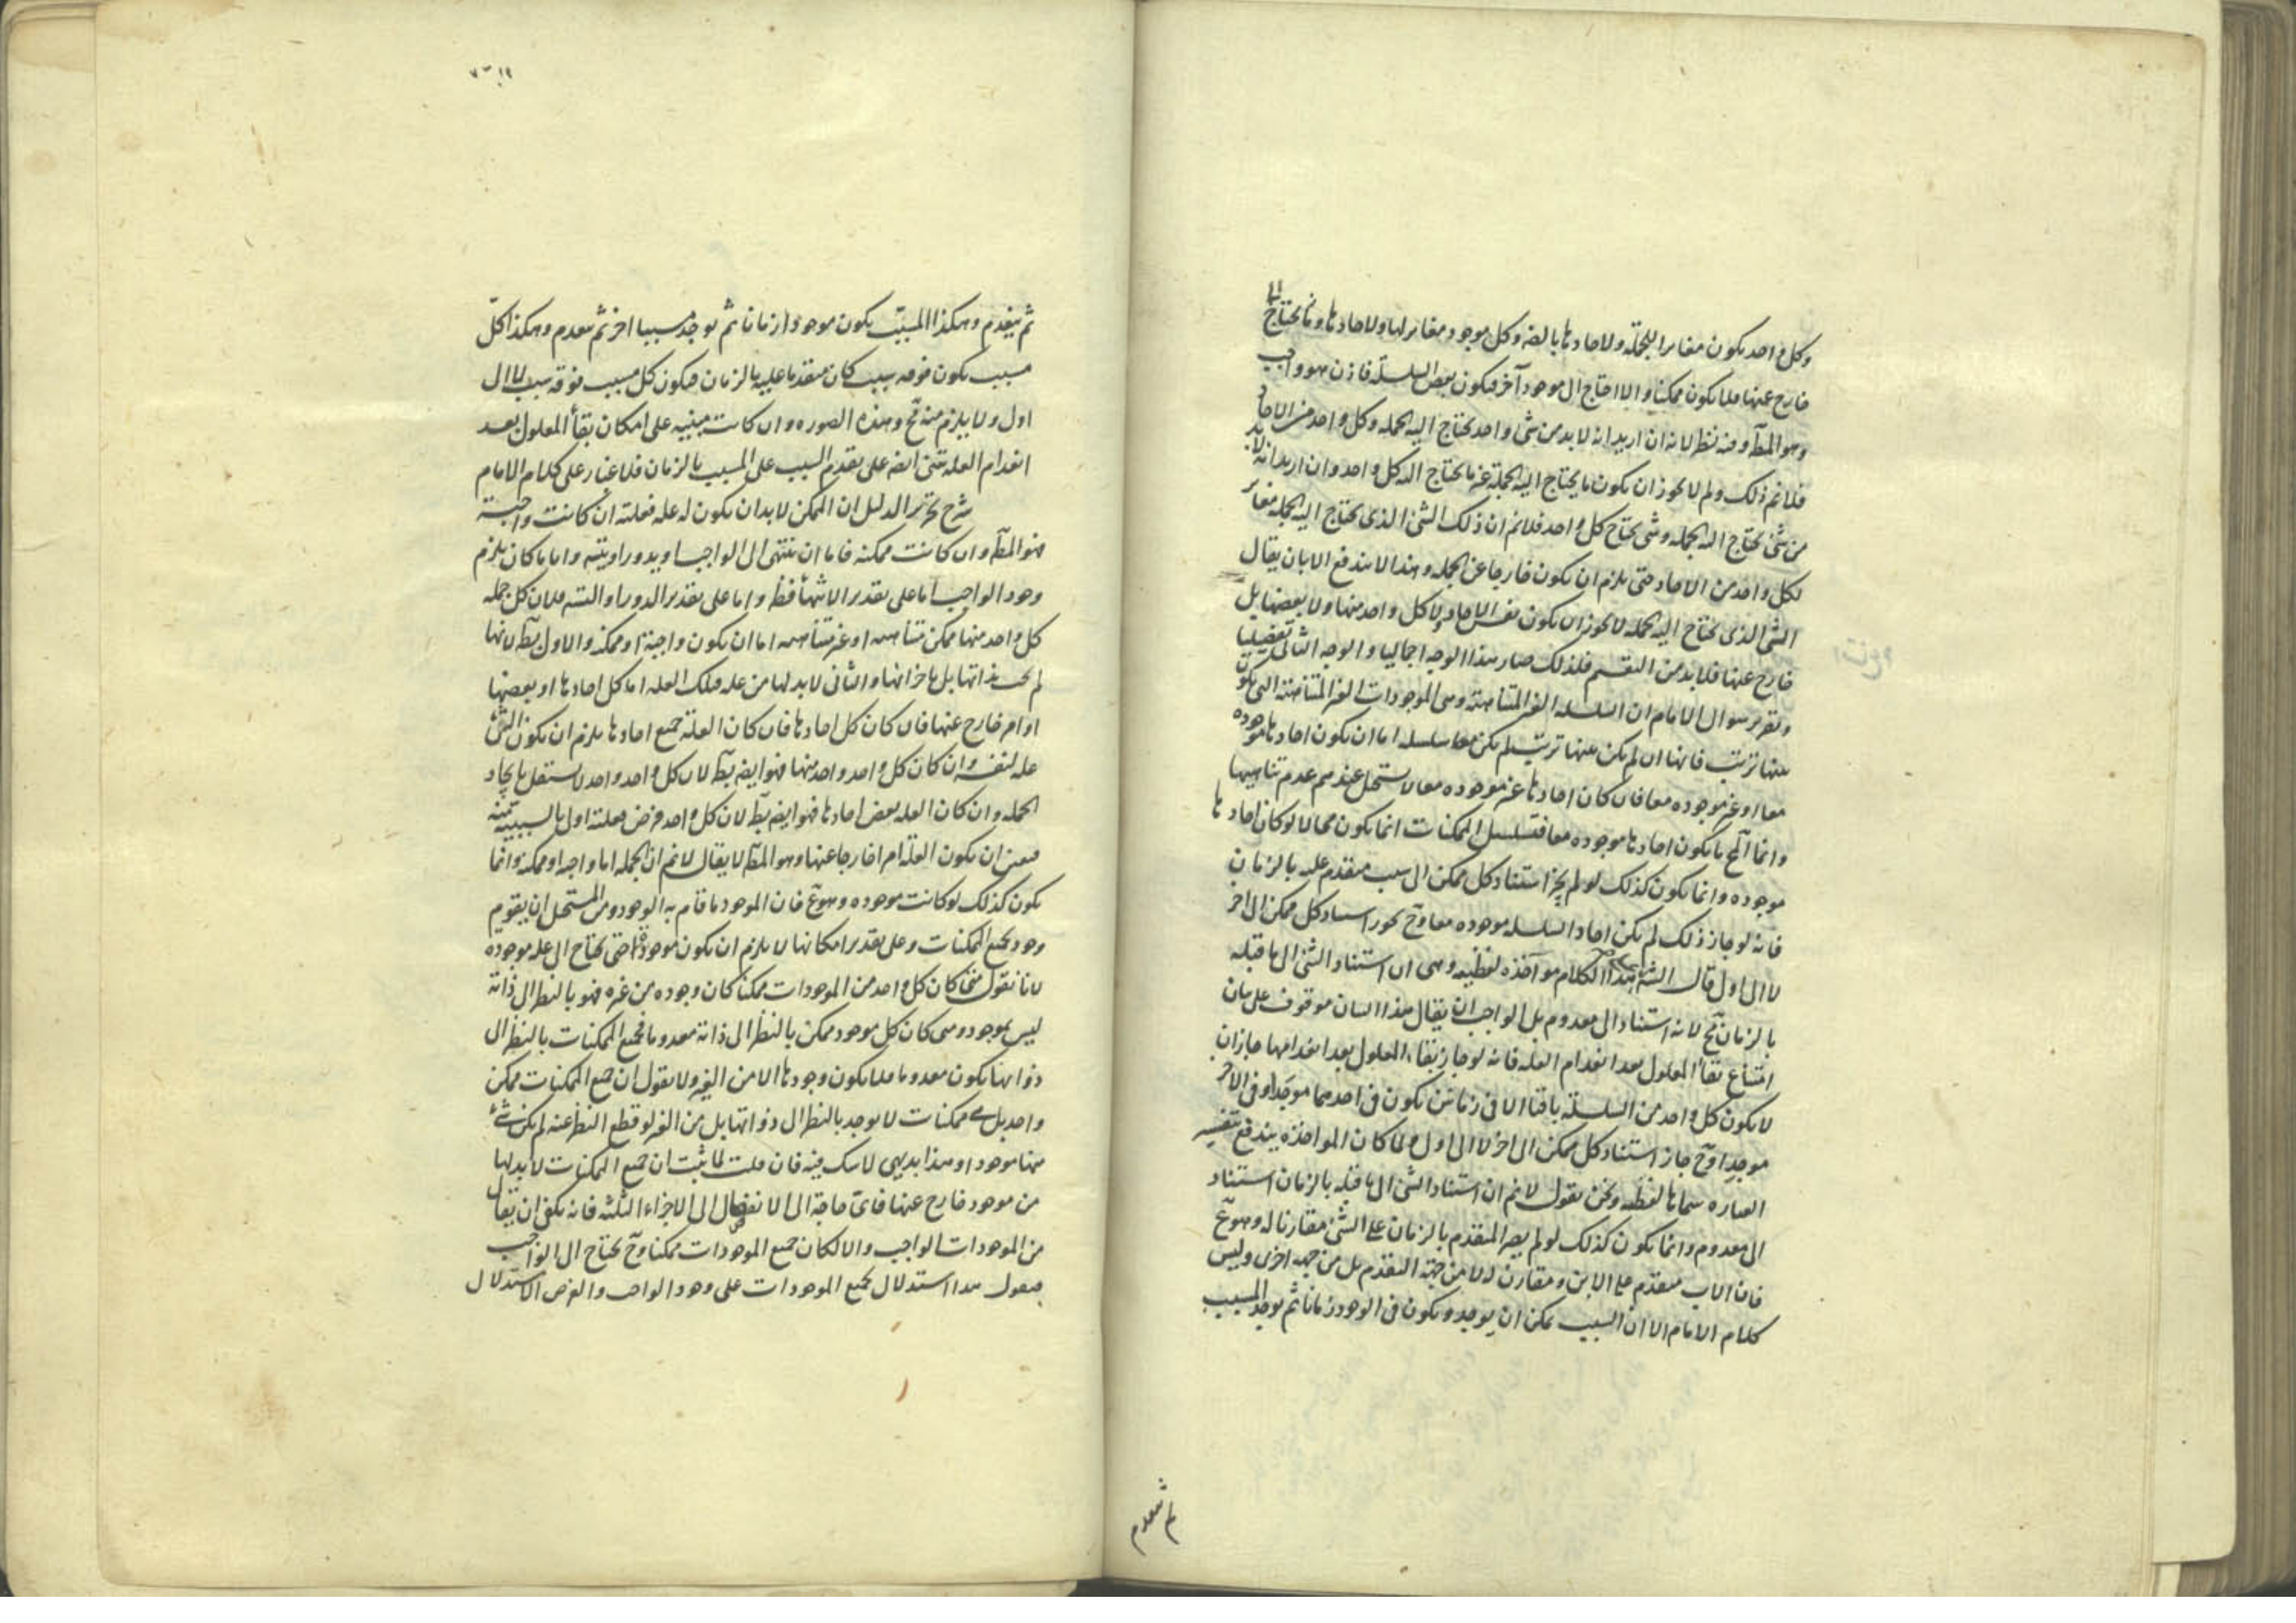 وكل واحد يكون مغايرا للجملة ولا حادها بالضه وكل موجود مغاير لها ولاحادها وما يحتاج اليها
خارج عنها فلا يكون ممكنا والا احتاج الى موجود آخر فيكون بعض السلسلة فاذن هو واجب
وهو المط وفيه نظر لانه ان اريد انه لا بد من شئ واحد يحتاج اليه الجملة وكل واحد من الاحاد
فلا نم ذلك ولم لا يجوز ان يكون ما يحتاج اليه الجملة غير ما يحتاج اليه كل واحد وان اريد انه لا بد
من شئ يحتاج اليه الجملة وشئ يحتاج كل واحد فلا نم ان ذلك الشئ الذى يحتاج اليه الجملة مغاير
لكل واحد من الاحاد حتى يلزم ان يكون خارجا عن الجملة وهذا لا يندفع الا بان يقال
الشئ الذى يحتاج اليه الجملة لا يجوز ان يكون نفس الاحاد ولا كل واحد منها ولا بعضها بل
خارج عنها فلا بد من التقسيم فلذلك صار هذا الوجه اجماليا والوجه الثانى تفصيليا
وتقرير سوال الامام ان السلسله الغير المتناهية وهى الموجودات الغير المتناهية التى يكون
بينها ترتب فانها ان لم يكن بينها ترتب لم يكن معا سلسله اما ان يكون احادها موجوده
معا او غير موجوده معا فان كان احادها غير موجوده معا لا يستحيل عندهم عدم تناهيها
وانما المح ما يكون احادها موجوده معا فتسلسل الممكنات انما يكون محالا لو كان احادها
موجوده وانما يكون كذلك لو لم يجز استناد كل ممكن الى سبب متقدم عليه بالزمان
فانه لو جاز ذلك لم يكن احاد السلسله موجوده معا وح يجوز استناد كل ممكن الى اخر
لا الى اول قال الش هذا الكلام مواخذه لفظيه وهى ان استناد الشئ الى ما قبله
بالزمان مح لانه استناد الى معدوم بل الواجب ان يقال هذا البيان موقوف على بيان
امتناع بقأ المعلول بعد انعدام العله فانه لو جاز بقاء المعلول بعد انعدامها جاز ان
لا يكون كل واحد من السلسلة باقيا الا فى زمانين يكون فى احدهما موجَدا وفى الآخر
موجِدا وح جاز استناد كل ممكن الى اخر لا الى اول ولما كان المواخذه يندفع بتغيير
العباره سماها لفظيه ونحن نقول لا نم ان استناد الشئ الى ما قبله بالزمان استناد
الى معدوم وانما يكون كذلك لو لم يصر المتقدم بالزمان على الشئ مقارنا له وهو مح
فان الاب متقدم على الابن ومقارن له لا من جهة التقدم بل من جهه اخرى وليس
كلام الامام الا ان السبب يمكن ان يوجد ويكون فى الوجود زمانا ثم يوجد المسبب
ثم ينعدم
ثم ينعدم وهكذا المسبب يكون موجودا زمانا ثم يوجد مسببا اخر ثم ينعدم وهكذا كل
مسبب يكون فوقه سبب كان متقدما عليه بالزمان فيكون كل مسبب فوقه سبب لا الى
اول ولا يلزم منه مح وهذه الصوره وان كانت مبنيه على امكان بقأ المعلول بعد
انعدام العله تبنى ايضه على تقدم السبب على المسبب بالزمان فلا غبار على كلام الامام
شرح تحرير الدليل ان الممكن لا بد ان يكون له عله فعلته ان كانت واجبة
فهو المط وان كانت ممكنه فاما ان ينتهى الى الواجب او يدور او يتسه وايا ما كان يلزم
وجود الواجب اما على تقدير الانتهأ فظ واما على تقدير الدور او التسه فلان كل جمله
كل واحد منها ممكن متناهيه او غير متناهيه اما ان يكون واجبة او ممكنه والاول بط لانها
لم يجب بذاتها بل باجزائها والثانى لا بد لها من عله فتلك العله اما كل احادها او بعضها
او امر خارج عنها فان كان كل احادها فان كان العلة جميع احادها يلزم ان يكون الشئ
عله لنفسه وان كان كل واحد واحد منها فهو ايضه بط لان كل واحد واحد لا يستقل بايجاد
الجمله وان كان العله بعض احادها فهو ايضه بط لان كل واحد فرض فعلته اولى بالسببيه منه
فتعين ان يكون العله امرا خارجا عنها وهو المط لا يقال لا نم ان الجمله اما واجبه او ممكنه وانما
يكون كذلك لو كانت موجوده وهو مح فان الموجود ما قام به الوجود ومن المستحيل ان يقوم
وجود بجميع الممكنات وعلى تقدير امكانها لا يلزم ان يكون موجودة حتى يحتاج الى عله موجوده
لانا نقول متى كان كل واحد من الموجودات ممكنا كان وجوده من غيره فهو بالنظر الى ذاته
ليس بموجود ومتى كان كل موجود ممكن بالنظر الى ذاته معدوما فجميع الممكنات بالنظر الى
ذواتها يكون معدوما فلا يكون وجودها الا من الغير ولا نقول ان جميع الممكنات ممكن
واحد بل هى ممكنات لا يوجد بالنظر الى ذواتها بل من الغير لو قطع النظر عنه لم يكن شئ
منها موجودا وهذا بديهى لا شك فيه فان قلت لما ثبت ان جميع الممكنات لا بد لها
من موجود خارج عنها فاى حاجة الى الانفصال الى الاجزاء الثلثه فانه يكفى ان يقال
من الموجودات الواجب والا لكان جميع الموجودات ممكنا وح يحتاج الى الواجب
فنقول هذا استدلال بجميع الموجودات على وجود الواجب والغرض الاستدلال